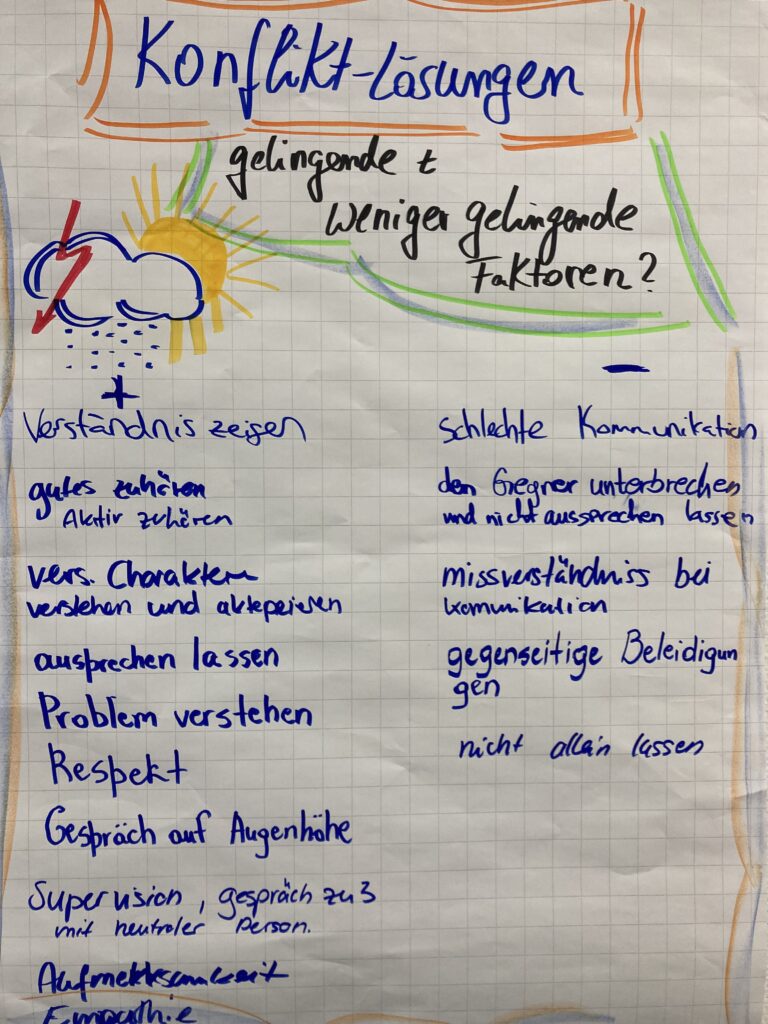 Konflikt-Lösungen
gelingende +
weniger gelingende
Faktoren?
+
Verständnis zeigen
gutes zuhören
Aktiv zuhören
vers. Charaktern
verstehen und aktepeieren
aussprechen lassen
Problem verstehen
Respekt
Gespräch auf Augenhöhe
Supervision, gespräch zu 3
mit neutraler Person.
Aufmerksamkeit
Empathie
-
schlechte Kommunikation
den Gegner unterbrechen
und nicht aussprechen lassen
missverständniss bei
komunikation
gegenseitige Beleidigun
gen
nicht allein lassen